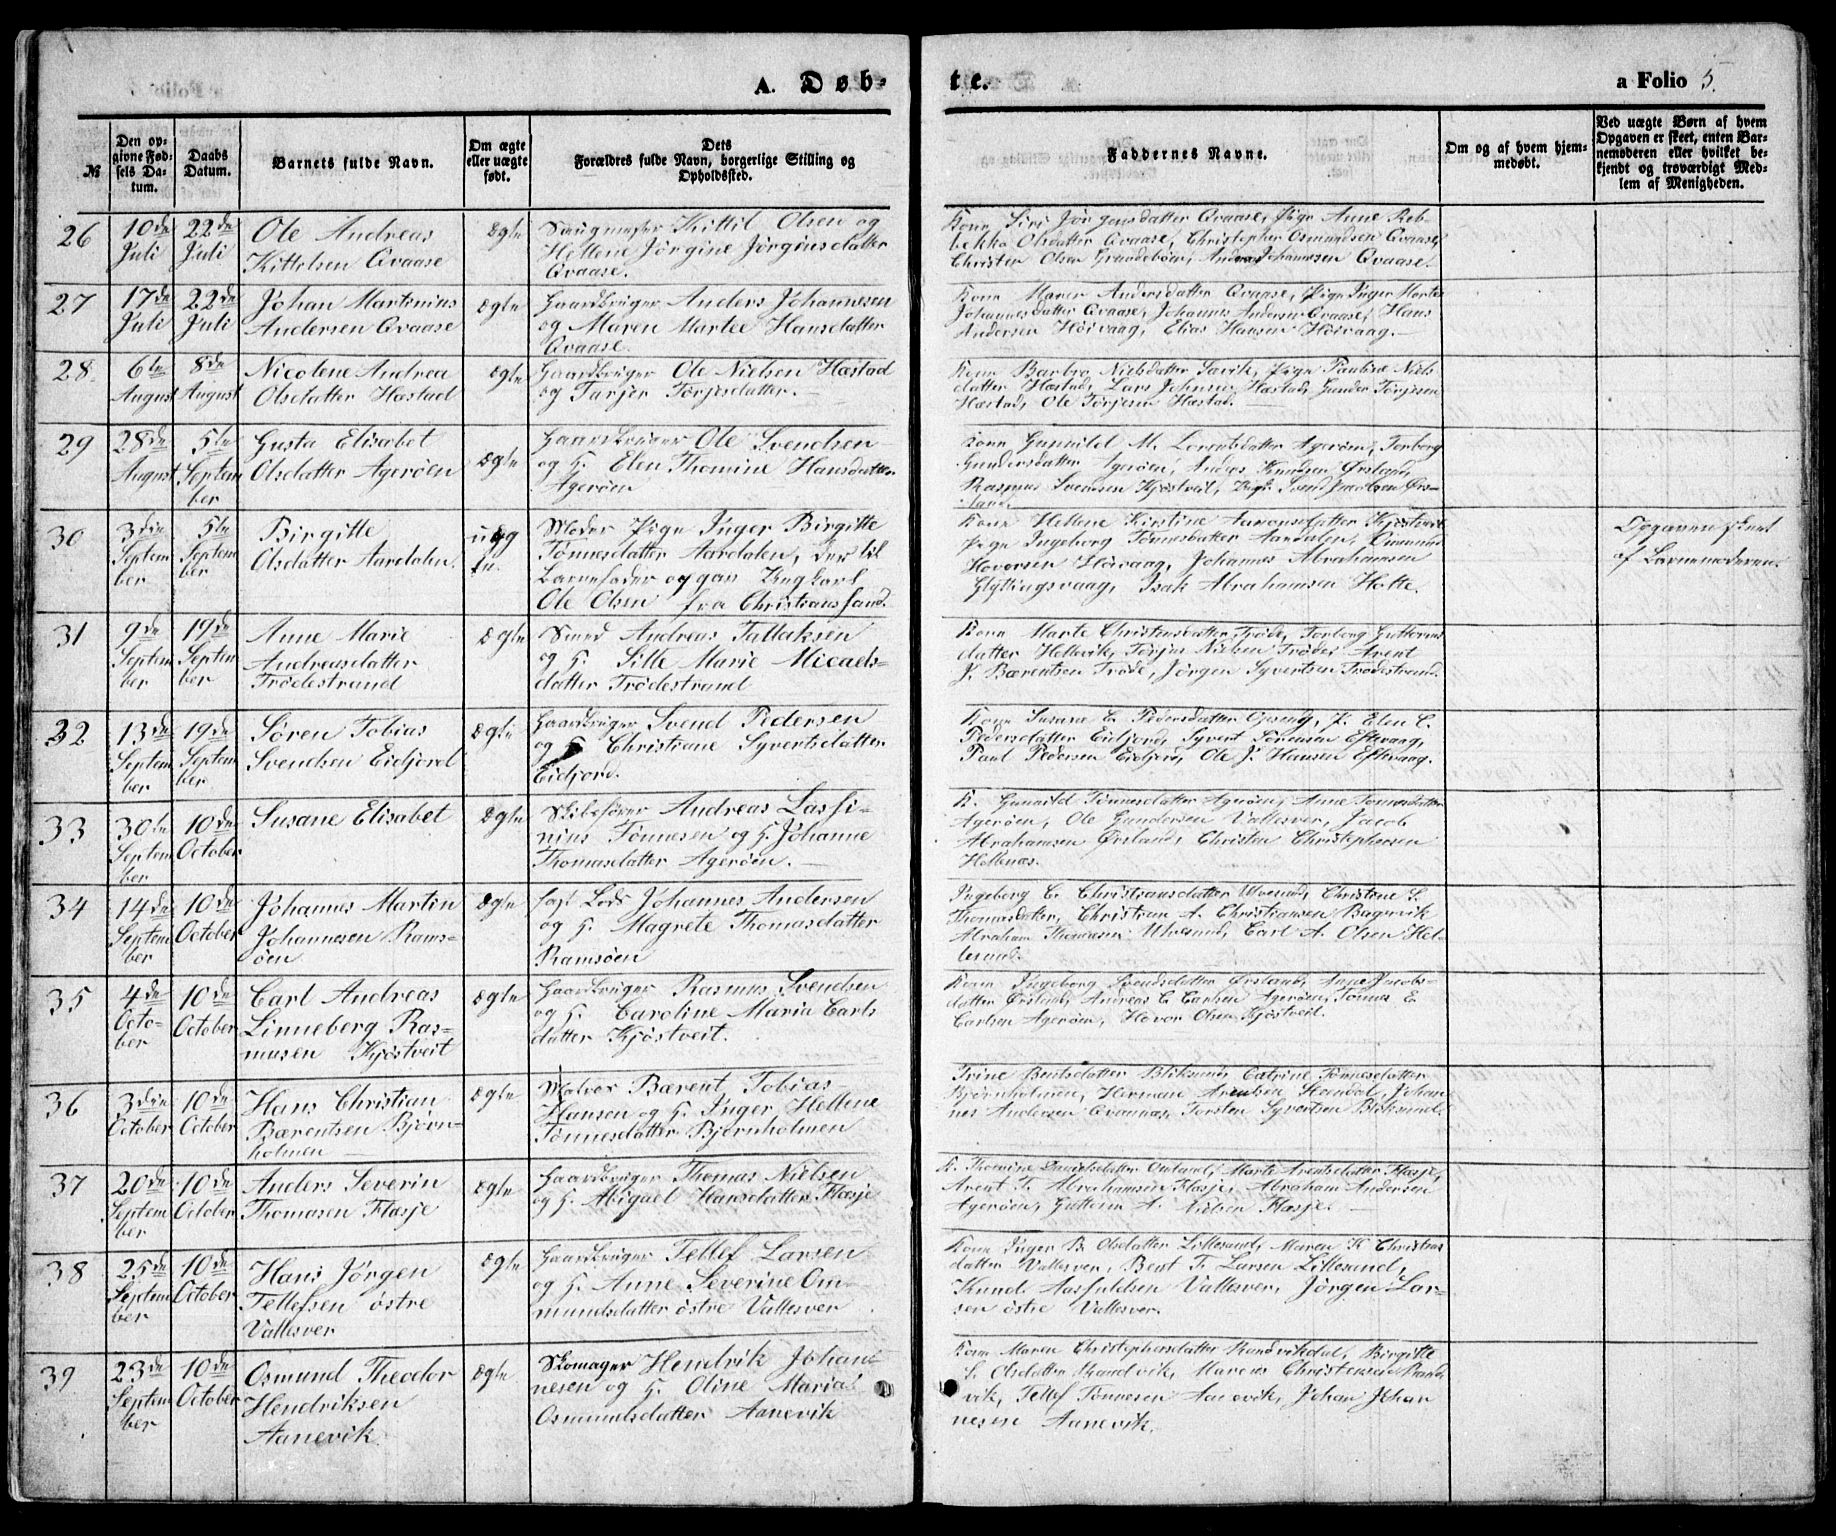 A. Døb-
te.
a Folio 5.
№
Den op-
givne Fød-
sels Da-
tum.
Daabs
Datum.
Barnets fulde Navn.
Om ægte
eller uægte
født.
Dets
Forældres fulde Navn, borgerlige Stilling og
Opholdssted.
Faddernes Navne.
Om og af hvem hjem-
medøbt.
Ved uægte Børn af hvem
Opgaven er skeet, enten Bar-
nemoderen eller hvilket be-
kjendt og troværdigt Med-
lem af Menigheden.
26
10de
Juli
22de
Juli
Ole Andreas
Kittelsen Qvaase
ægte
Saugmester Kittil Olsen og
Hellene Jørgine Jørginsdatter
Qvaase.
Kone Siri Jørgensdatter Qvaase, Pige Anne Reb-
bekka Olsdatter Qvaase, Christopher Osmundsen Qvaase,
Christen Olsen Grandebøen, Andreas Johannesen Qvaase.
27
17de
Juli
22de
Juli
Johan Martinius
Andersen Qvaase
ægte
Gaardbruger Anders Johannesen
og Maren Martee Hansdatter
Qvaase.
Kone Maren Andersdatter Qvaase, Pige Inger Marte
Johannesdatter Qvaase, Johannes Andersen Qvaase, Hans
Andersen Høivaag, Elias Hansen Høivaag.
28.
6te
August
8de
August
Nicolene Andrea
Olsdatter Hæstad
ægte
Gaardbruger Ole Nielsen Hæstad
og Tarjer Torjesdatter.
Kone Barbro Nielsdatter Sævik, Pige Pauline Niels
datter Hæstad, Lars Johnsen Hæstad, Gunder Torjesen
Hæstad, Ole Torjesen Hæstad.
29
28de
August
5te
Septem
ber
Gusta Elisabet
Olsdatter Agerøen
ægte
Gaardbruger Ole Svendsen
og H. Elen Thomine Hansdatter
Agerøen
Kone Gunvild M. Lorentsdatter Agerøen, Torborg
Gundersdatter Agerøen, Anders Knudsen Ørsland,
Rasmus Svensen Kjøstveit, Svend Jacobsen Ørs-
land.
30
3die
Septem
ber
5te
Septem
ber
Birgitte
Olsdatter Aardalen.
uæg
te.
Moder Pige Inger Birgitte
Tønnesdatter Aardalen, der til
Barnefader opgav Ungkarl
Ole Olsen fra Christianssand.
Kone Hellene Kirstine Aanonsdatter Kjøstveit
Pige Ingeborg Tønnesdatter Aardalen, Omund
Hovorsen Høivaag, Johannes Abrahamsen
Glytlingsvaag, Isak Abrahamsen Holte.
Opgaven skeet
af Barnemoderen.
31
9de
Septem
ber
19de
Septem
ber
Anne Marie
Andreasdatter
Trødestrand
ægte
Smed Andreas Tallaksen
og H. Sille Marie Micaels-
datter Trødestrand
Kone Marte Christensdatter Trøde, Torborg Guttorms
datter Hellevik, Torjus Nielsen Trøde, Arent
J. Bærentsen Trøde, Jørgen Syvertsen Trødestrand.
32
13de
Septem
ber
19de
Septem
ber
Søren Tobias
Svendsen Eidjord
ægte
Gaardbruger Svend Pedersen
og H. Christiane Syvertsdatter
Eidjord.
Kone Susane E. Pedersdatter Opsund, P. Elen C.
Pedersdatter Eidjord, Syvert Sørensen Eftevaag,
Paul Pedersen Eidjord, Ole J. Hansen Eftevaag.
33
30te
Septem
ber
10de
October
Susane Elisabet
ægte
Skibsfører Andreas Lassi-
nius Tønnesen og H. Johanne
Thomasdatter Agerøen.
K. Gunvild Tønnesdatter Agerøen, Anne Tomasdatter
Agerøen, Ole Gundersen Vallesver, Jacob
Abrahamsen Ørsland, Christen Christophersen
Hellenæs.
34
14de
Septem
ber
10de
October
Johannes Martin
Johannesen Rams-
øen
ægte
fast Lods Johannes Andersen
og H. Magrete Thomasdatter
Ramsøen
Ingeborg C. Christiansdatter Ulvesund, Christene S.
Thomasdatter, Christian A. Christiansen Bagervik
Abraham Thomasen Ulvesund, Carl A. Olsen Hel-
lesund.
35
4de
Octo-
ber
10de
October
Carl Andreas
Linneberg Ras-
musen Kjøstveit
ægte
Gaardbruger Rasmus Svendsen
og H. Caroline Maria Carls
datter Kjøstveit.
Kone Ingeborg Svendsdatter Ørsland, Anne Jacobs-
datter Ørsland, Andreas C. Carlsen Agerøen, Tønnes E.
Carlsen Agerøen, Hovor Olsen Kjøstveit.
36
3die
October
10de
October
Hans Christian
Bærentsen Bjørn-
holmen
ægte
Matros Bærent Tobias
Hansen og H. Inger Hellene
Tønnesdatter Bjørnholmen
Trine Bentsdatter Bliksund, Catrine Tønnesdatter
Bjørnholmen, Herman Arentsen Stendal, Johan
nes Andersen Qvannes, Torsten Syvertsen Bliksund.
37
20de
Septem
ber
10de
October
Anders Severin
Thomasen Flasje
ægte
Gaardbruger Thomas Nielsen
og H. Abigael Hansdatter Flasje
K. Thomine Davidsdatter Omland, Marte Arentsdatter Flasje,
Arent T. Abrahamsen Flasje, Abraham Andersen
Agerøen, Guttorm A. Nielsen Flasje.
38
25de
Septem
ber
10de
October
Hans Jørgen
Tellefsen østre
Vallesver
ægte
Gaardbruger Tellef Larsen
og H. Anne Severine Om-
mundsdatter østre Vallesver
Kone Inger B. Olsdatter Lillesand, Maren K. Christens
datter Vallesver, Bent T. Larsen Lillesand,
Knud Aasfuldsen Vallesver, Jörgen Lar-
sen østre Vallesver.
39
23de
Septem
ber
10de
October
Osmund Theodor
Hendriksen
Aanevik.
ægte
Skomager Hendrik Johan
nesen og H. Oline Maria
Osmundsdatter Aanevik
Kone Maren Christophersdatter Randvikdal, Birgitte
S. Olsdatter Randvik, Marcus Christensen Rand
vik, Tellef Tønnesen Aanevik, Johan Johan
nesen Aanevik.